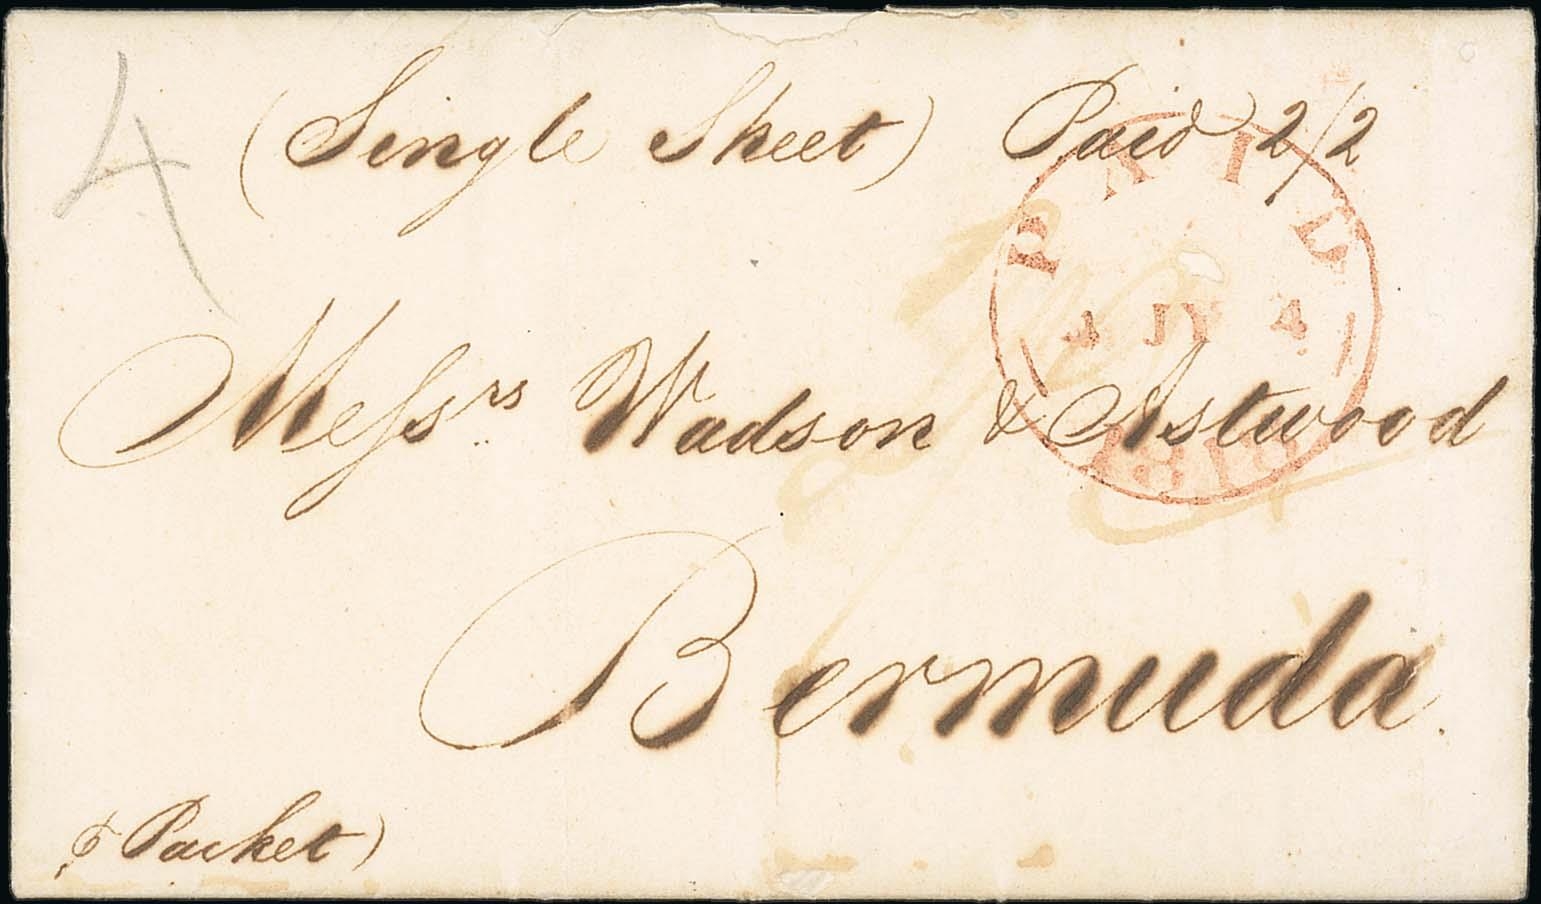 4
(Single Sheet) Paid 2/2
PAID
4 JY 4
Messrs. Wadson & Astwood
Bermuda.
Packet)